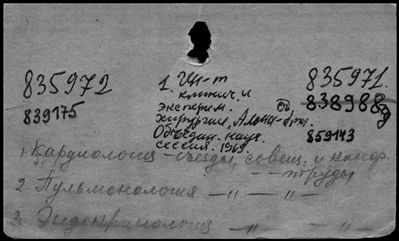 835972
839175
1. Ин-т
клинич. и
эксперим.
хирургии, Алма-Ата.
Объедин. науч.
сессия. 1969.
835971.
838988
859143
1 Кардиология – съезды, совещ. и конф.
– – труды
2 Пульмонология – " – – " –
3 Эндокринология – " – – " –